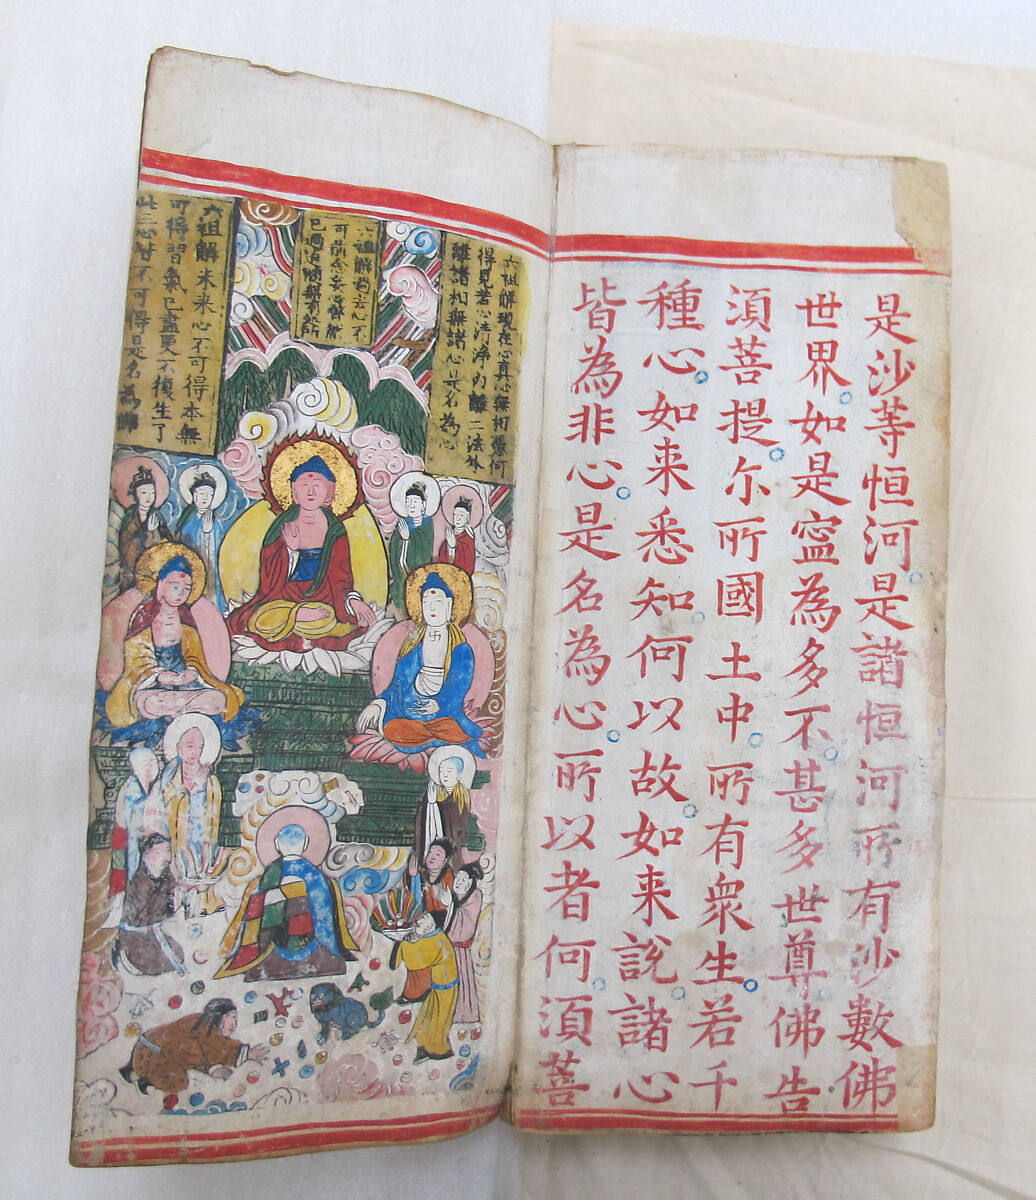 是沙等恒河是諸恒河所有沙數佛
世界如是寍為多不甚多世尊佛告
須菩提尔所國土中所有衆生若干
種心如来悉知何以故如来說諸心
皆為非心是名為心所以者何須菩
六祖解現在心真心無相憑何
得見若心清淨內離二法外
離諸相無諸心是名為心
六祖解過去心不
可前念妄心瞥然
已過追無有所
六祖解未来心不可得本無
可得習氣已盡更不復生了
此三心皆不可得是名為佛
2